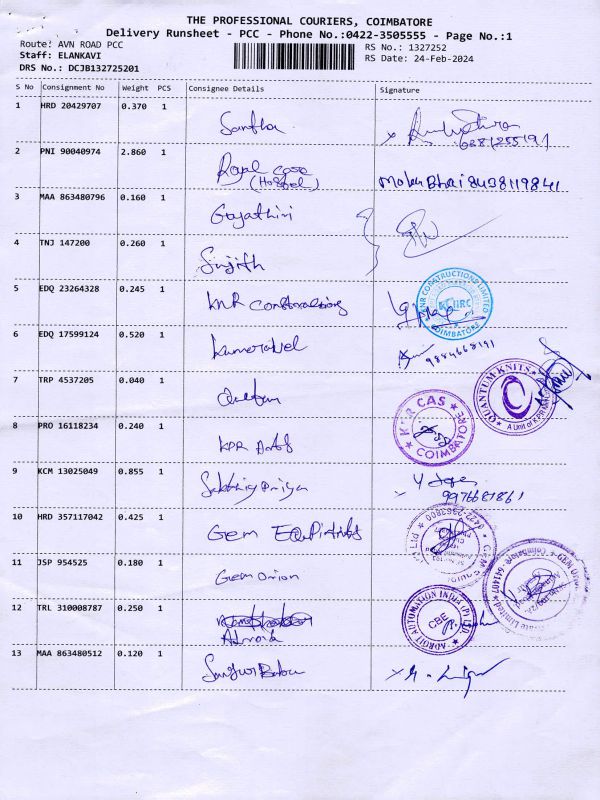 THE PROFESSIONAL COURIERS, COIMBATORE
Delivery Runsheet - PCC - Phone No.:0422-3505555 - Page No.:1
Route: AVN ROAD PCC
RS No.: 1327252
Staff: ELANKAVI
RS Date: 24-Feb-2024
DRS No.: DCJB132725201
S No Consignment No Weight PCS Consignee Details Signature
1 HRD 20429707 0.370 1 Santha
2 PNI 90040974 2.860 1 Royal case
(Hostel) Mohan Bhai 8438119841
3 MAA 863480796 0.160 1 Gayathiri
4 TNJ 147200 0.260 1 Sinjith
5 EDQ 23264328 0.245 1 KNR Constructions
KNR CONSTRUCTIONS LIMITED
COIMBATORE
6 EDQ 17599124 0.520 1 Kumaravel 9884668191
7 TRP 4537205 0.040 1
QUANTUM KNITS
8 PRO 16118234 0.240 1 KPR
CAS
COIMBATORE
9 KCM 13025049 0.855 1 Sakthiy Priya
9976687861
10 HRD 357117042 0.425 1 Gem
11 JSP 954525 0.180 1 Gem Orion
12 TRL 310008787 0.250 1
ADROIT AUTOMATION INDIA (P) LTD.
CBE
13 MAA 863480512 0.120 1 Babu